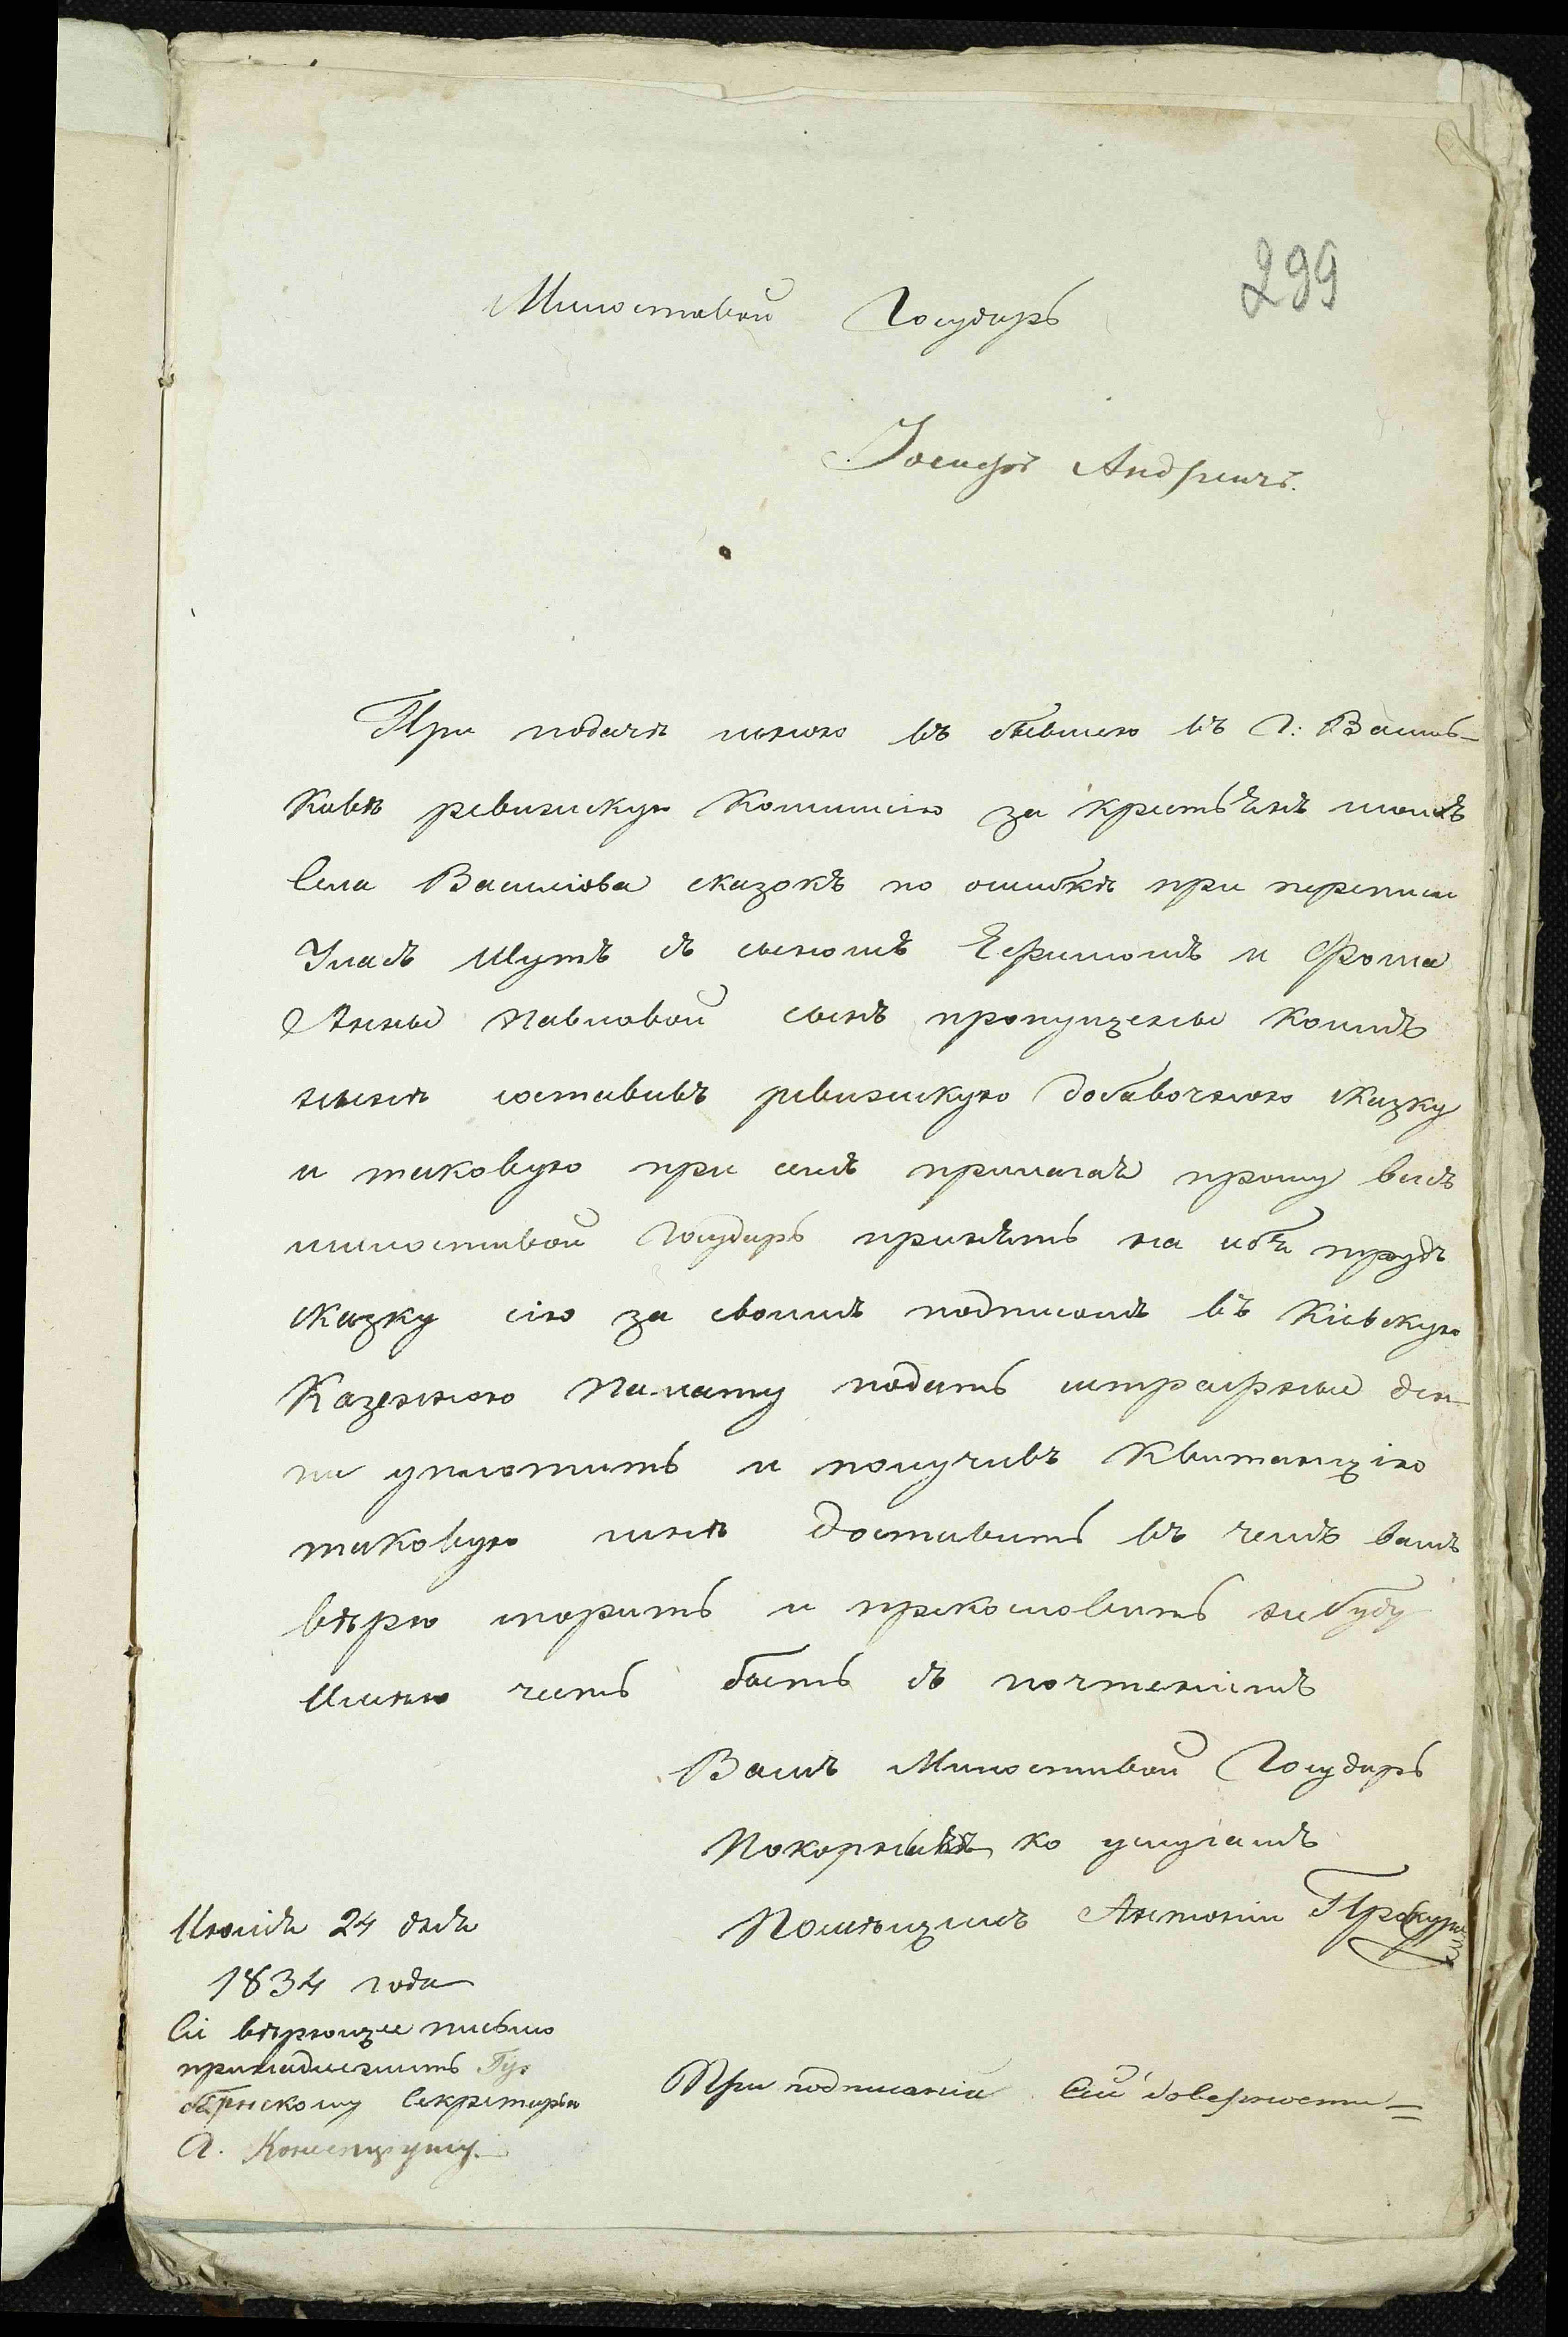 299
Милостивой Государь
Іосифъ Андреичъ.
При подачѣ мною въ бывшею въ г: Василь-
ковѣ ревизскую Комиссію за крестьѧнъ моихъ
села Василіова сказокъ по ошибкѣ при переписи
Улась Шутъ съ сыномъ Ефимомъ и Фома
Анны Павловой сынъ пропущены коимъ
нынѣ составивъ ревизскую добавочною сказку
и таковую при семъ прилагаѧ прошу васъ
милостивой Государь принѧть на себѧ трудъ
сказку сію за своимъ подписомъ въ Кіевскую
Казенною Палату подать штрафные ден-
ги уплотить и получивъ Квитанцію
таковую мнѣ доставить въ чемъ вамъ
вѣрю спорить и прекословить небуду
Имѣю честь быть съ почтеніемъ
Вамъ Милостивой Государь
Покорный ко услугамъ
Помѣщикъ Антоній
Июліѧ 24 днѧ
1834 года
Сіе вѣрющее письмо
принадлежитъ Гу-
бернскому Секретарю
При подписаніи сей доверности=